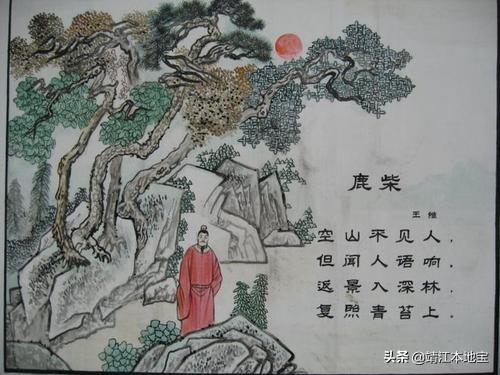 鹿柴
王维
空山不见人，
但闻人语响．
返景入深林，
复照青苔上．
头条 @靖江本地宝